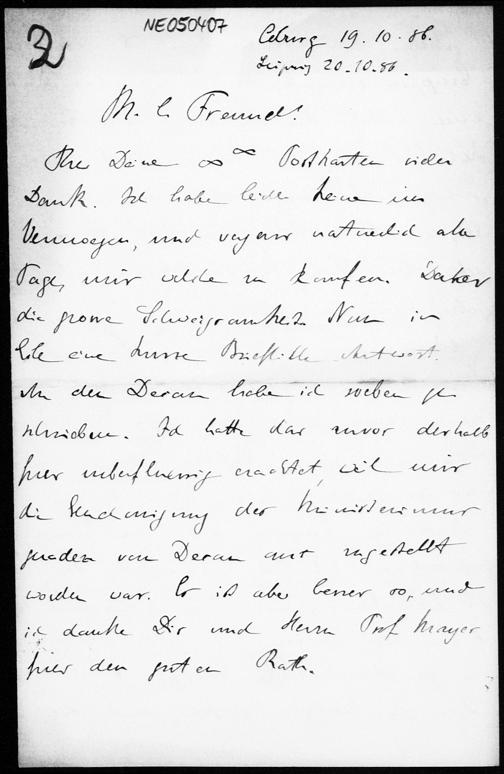 2
NE050407
Coburg 19.10.86.
Leipzig 20.10.86.
M. l. Freund!
Fuer Deine ∞ ∞ Postkarten vielen
Dank. Ich habe leider keine im
Vermoegen, und vergesse natuerlich alle
Tage, mir welche zu kaufen. Daher
die grosse Schweigsamkeit. Nun in
Eile eine kurze Briefliche Antwort.
An den Decan habe ich soeben ge
schrieben. Ich hatte das zuvor deshalb
fuer ueberfluessig erachtet, weil mir
die Genehmigung des Ministeriums
gerade vom Decan aus zugestellt
worden war. Es ist aber besser so, und
ich danke Dir und Herrn Prof Mayer
fuer den guten Rath.